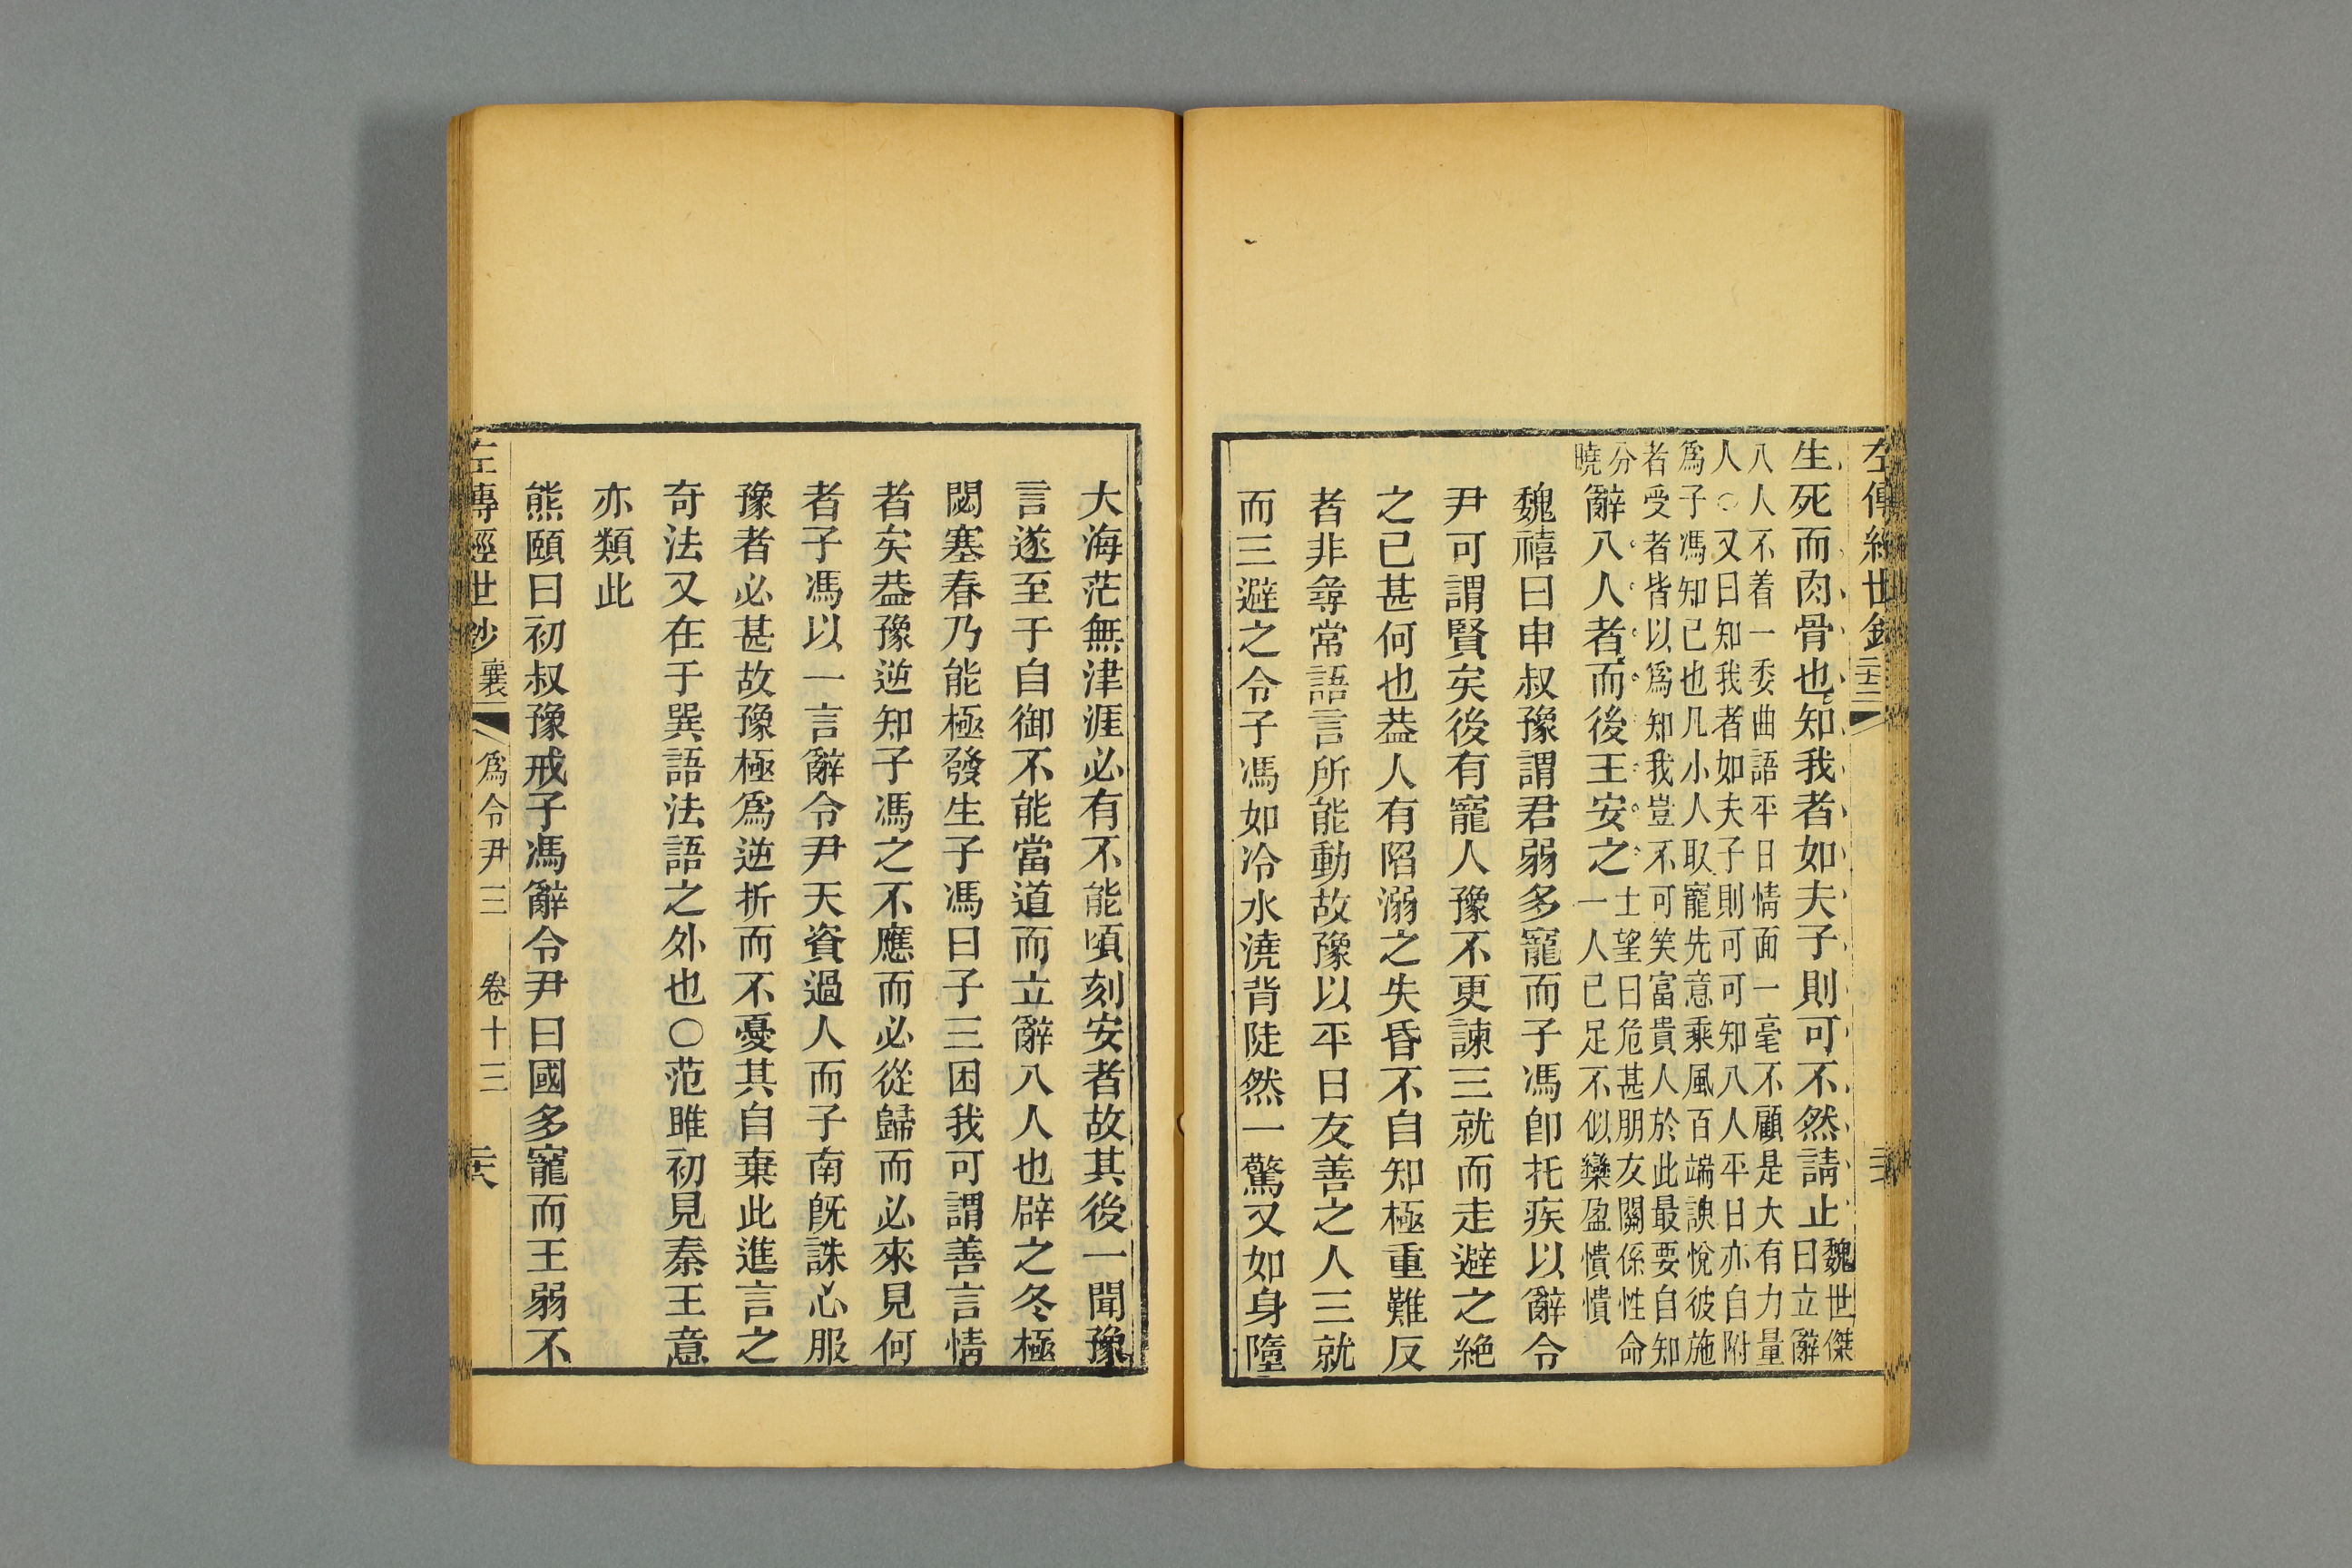 左傳經世鈔
生死而肉骨也知我者如夫子則可不然請止魏世傑曰立辭
八人不着一委曲語平日情面一毫不顧是大有力量
人○又曰知我者如夫子則可可知八人平日亦自附
爲子馮知已也凡小人取寵先意乘風百端諛悅彼施
者受者皆以爲知我豈不可笑富貴人於此最要自知
分曉辭八人者而後王安之士望曰危甚朋友關係性命一人已足不似欒盈憒憒
魏禧曰申叔豫謂君弱多寵而子馮卽托疾以辭令
尹可謂賢矣後有寵人豫不更諫三就而走避之絶
之已甚何也葢人有陷溺之失昏不自知極重難反
者非尋常語言所能動故豫以平日友善之人三就
而三避之令子馮如冷水澆背陡然一驚又如身墮
大海茫無津涯必有不能頃刻安者故其後一聞豫
言遂至于自御不能當道而立辭八人也辟之冬極
閟塞春乃能極發生子馮曰子三困我可謂善言情
者矣葢豫逆知子馮之不應而必從歸而必來見何
者子馮以一言辭令尹天資過人而子南旣誅心服
豫者必甚故豫極爲逆折而不憂其自棄此進言之
奇法又在于巽語法語之外也○范雎初見秦王意
亦類此
熊頤曰初叔豫戒子馮辭令尹曰國多寵而王弱不
左傳經世鈔 襄二 爲令尹三 卷十三 二六